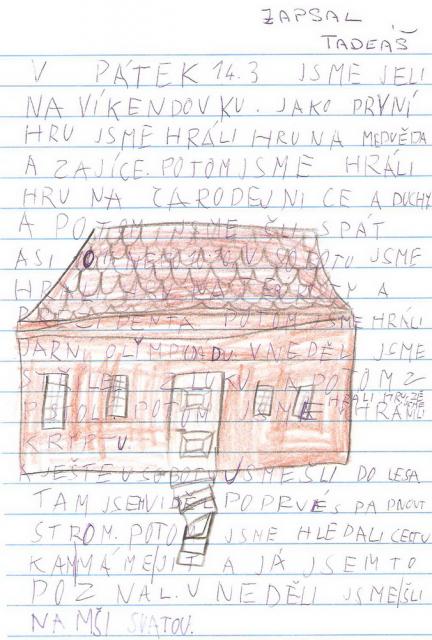 ZAPSAL
TADEÁŠ
V PÁTEK 14.3 JSME JELI
NA VÍKENDOVKU. JAKO PRVNÍ
HRU JSME HRÁLI HRU NA MEDVĚDA
A ZAJÍCE. POTOM JSME HRÁLI
HRU NA ČARODEJNICE A DUCHY
A POTOM JSME ŠLI SPÁT
ASI V SOBOTU JSME
NA A
PREZIDENTA POTOM JSME HRÁLI
JARNÍ OLYMPIJADU V NEDĚLI JSME
STŘÍLELI Z LUKU A POTOM Z
PISTOLE POTOM JSME HRÁLI HRU ŽE JSME HRÁLI
KRYPTU.
A JEŠTE V SOBOTU JSME ŠLI DO LESA
TAM JSEM VIDĚL POPRVÉ SPADNOUT
STROM. POTOM JSME HLEDALI CESTU
KAM MÁME JÍT A JÁ JSEM TO
POZNAL. V NEDĚLI JSME ŠLI
NA MŠI SVATOU.